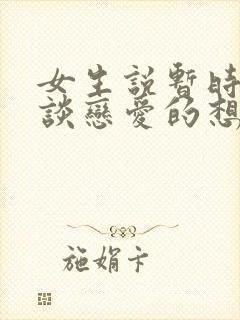 女生説暫時
談戀愛的想
施娟卡